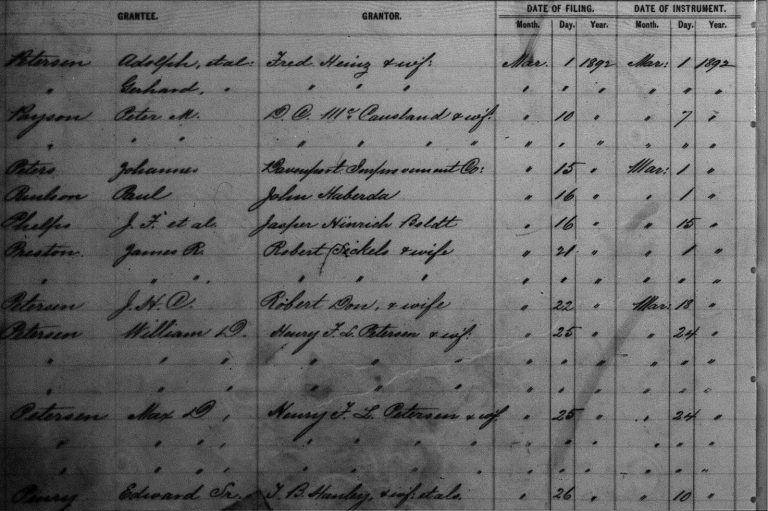 GRANTEE. GRANTOR. DATE OF FILING. DATE OF INSTRUMENT.
Month. Day. Year. Month. Day. Year.
Petersen Adolph, et al. Fred Heinz & wf: Mar. 1 1892 Mar: 1 1892
" Gerhard, " " " " " " " " " "
Payson Peter M. D. C. McCausland & wf. " 10 " " 7 "
" " " " " " " " " " "
Peters Johannes Davenport Improvement Co: " 15 " Mar: 1 "
Paulson Paul John Haberda " 16 " " 1 "
Phelps J. F. et al. Jasper Hinrich Boldt " 16 " " 15 "
Preston James R. Robert Sickels & wife " 21 " " 1 "
" " " " " " " " " " " "
Petersen J. H. C. Robert Don, & wife " 22 " Mar: 18 "
Petersen William D. Henry F. L. Petersen & wf: " 25 " " 24 "
" " " " " " " " " " " "
" " " " " " " " " " " "
Petersen Max D. " Henry F. L. Petersen & wf. " 25 " " 24 "
" " " " " " " " " " " " "
" " " " " " " " " " " " "
Edward Sr. T. B. Hanley, & wf: et als. " 26 " " 10 "